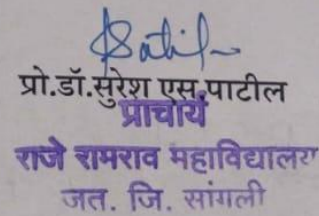 प्रो.डॉ.सुरेश एस.पाटील
प्राचार्य
राजे रामराव महाविद्यालय
जत. जि. सांगली